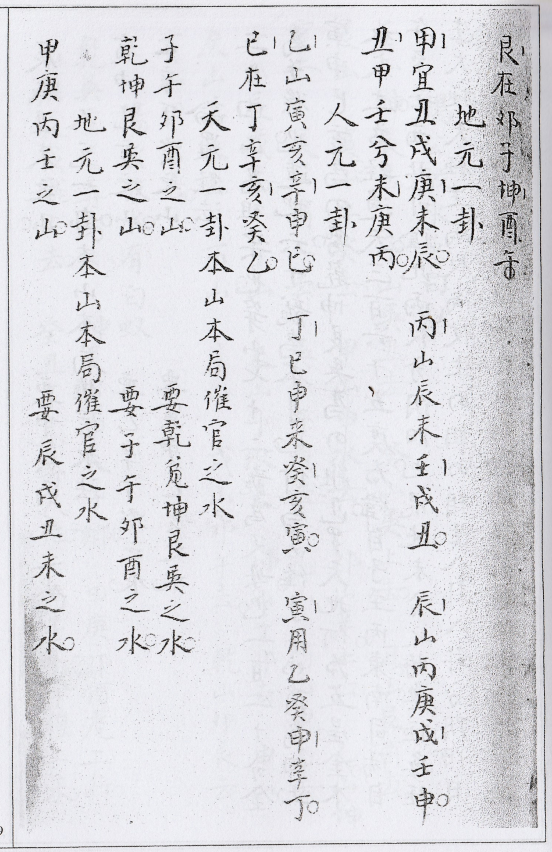 艮在卯子坤酉午
地元一卦
甲宜丑戌庚未辰○ 丙山辰未壬戌丑○ 辰山丙庚戌壬申○
丑甲壬兮未庚丙○
人元一卦
乙山寅亥辛申巳○ 丁巳申未癸亥寅○ 寅用乙癸申辛丁○
巳在丁辛亥癸乙○
天元一卦本山本局催官之水
子午卯酉之山○ 要乾坤艮巽之水○
乾坤艮巽之山○ 要子午卯酉之水○
地元一卦本山本局催官之水
甲庚丙壬之山○ 要辰戌丑未之水○